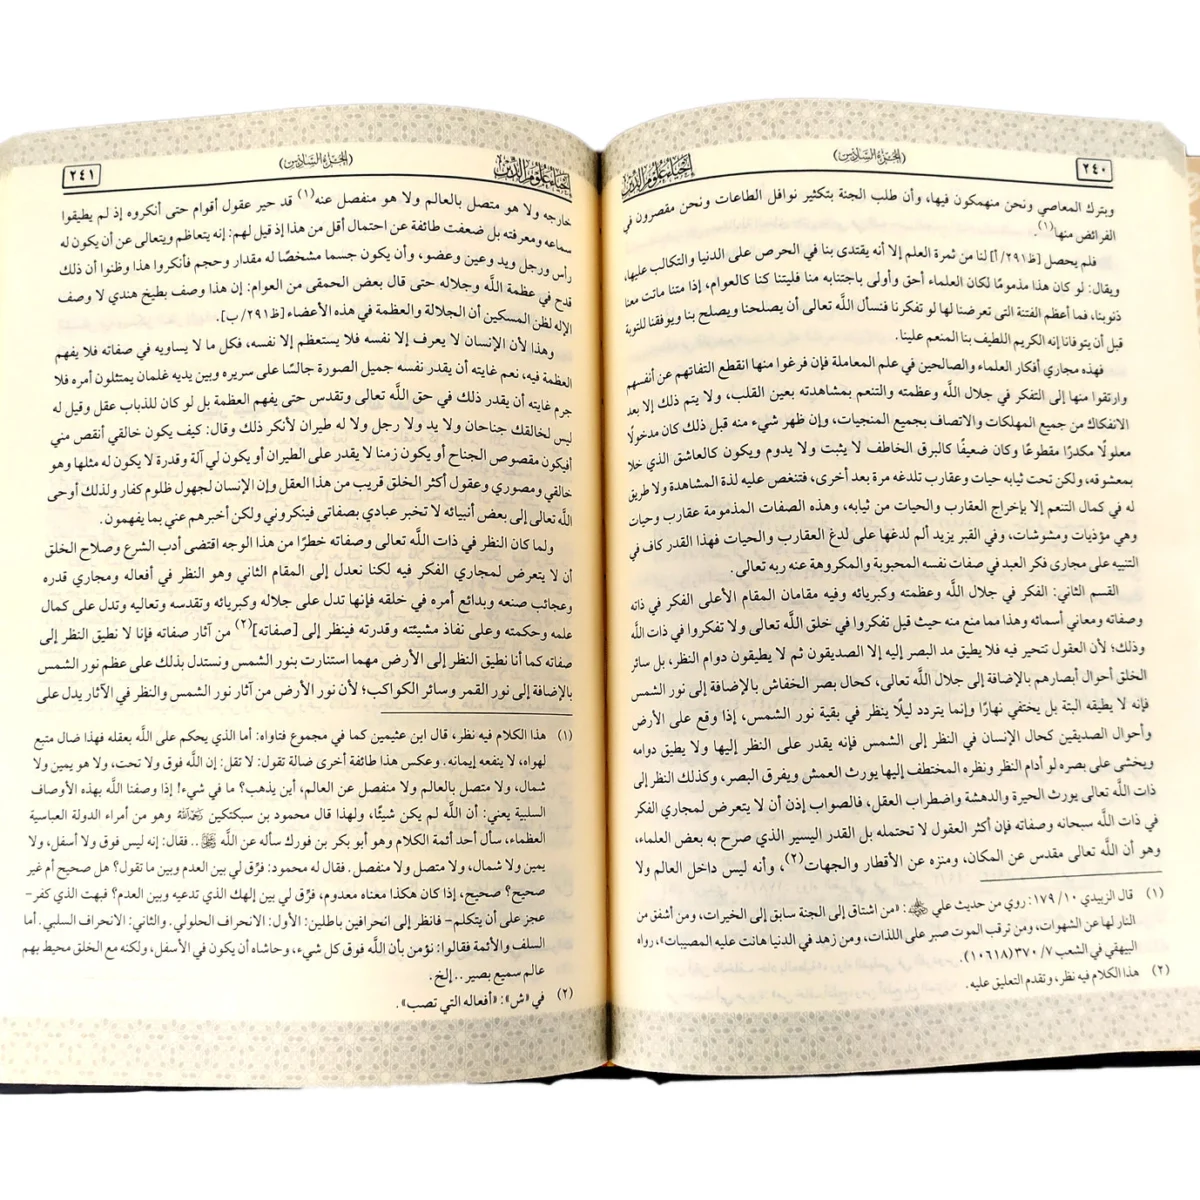 ٢٤٠
(الجزء السادس)
إحياء علوم الدين
وبترك المعاصي ونحن منهمكون فيها، وأن طلب الجنة بتكثير نوافل الطاعات ونحن مقصرون في
الفرائض منها(١).
فلم يحصل [ظ٢٩١/أ] لنا من ثمرة العلم إلا أنه يقتدى بنا في الحرص على الدنيا والتكالب عليها،
ويقال: لو كان هذا مذمومًا لكان العلماء أحق وأولى باجتنابه منا فليتنا كنا كالعوام، إذا متنا ماتت معنا
ذنوبنا، فما أعظم الفتنة التى تعرضنا لها لو تفكرنا فنسأل اللَّه تعالى أن يصلحنا ويصلح بنا ويوفقنا للتوبة
قبل أن يتوفانا إنه الكريم اللطيف بنا المنعم علينا.
فهذه مجاري أفكار العلماء والصالحين في علم المعاملة فإن فرغوا منها انقطع التفاتهم عن أنفسهم
وارتقوا منها إلى التفكر في جلال اللَّه وعظمته والتنعم بمشاهدته بعين القلب، ولا يتم ذلك إلا بعد
الانفكاك من جميع المهلكات والاتصاف بجميع المنجيات، وإن ظهر شيء منه قبل ذلك كان مدخولًا
معلولًا مكدرًا مقطوعًا وكان ضعيفًا كالبرق الخاطف لا يثبت ولا يدوم ويكون كالعاشق الذي خلا
بمعشوقه، ولكن تحت ثيابه حيات وعقارب تلدغه مرة بعد أخرى، فتنغص عليه لذة المشاهدة ولا طريق
له في كمال التنعم إلا بإخراج العقارب والحيات من ثيابه، وهذه الصفات المذمومة عقارب وحيات
وهي مؤذيات ومشوشات، وفي القبر يزيد ألم لدغها على لدغ العقارب والحيات فهذا القدر كاف في
التنبيه على مجارى فكر العبد في صفات نفسه المحبوبة والمكروهة عنه ربه تعالى.
القسم الثاني: الفكر في جلال اللَّه وعظمته وكبريائه وفيه مقامان المقام الأعلى الفكر في ذاته
وصفاته ومعاني أسمائه وهذا مما منع منه حيث قيل تفكروا في خلق اللَّه تعالى ولا تفكروا في ذات اللَّه
وذلك؛ لأن العقول تتحير فيه فلا يطيق مد البصر إليه إلا الصديقون ثم لا يطيقون دوام النظر، بل سائر
الخلق أحوال أبصارهم بالإضافة إلى جلال اللَّه تعالى، كحال بصر الخفاش بالإضافة إلى نور الشمس
فإنه لا يطيقه البتة بل يختفي نهارًا وإنما يتردد ليلًا ينظر في بقية نور الشمس، إذا وقع على الأرض
وأحوال الصديقين كحال الإنسان في النظر إلى الشمس فإنه يقدر على النظر إليها ولا يطيق دوامه
ويخشى على بصره لو أدام النظر ونظره المختطف إليها يورث العمش ويفرق البصر، وكذلك النظر إلى
ذات اللَّه تعالى يورث الحيرة والدهشة واضطراب العقل، فالصواب إذن أن لا يتعرض لمجاري الفكر
في ذات اللَّه سبحانه وصفاته فإن أكثر العقول لا تحتمله بل القدر اليسير الذي صرح به بعض العلماء،
وهو أن اللَّه تعالى مقدس عن المكان، ومنزه عن الأقطار والجهات(٢)، وأنه ليس داخل العالم ولا
(١) قال الزبيدي ١٠/ ١٧٩: روي من حديث علي رضي الله عنه: «من اشتاق إلى الجنة سابق إلى الخيرات، ومن أشفق من
النار لها عن الشهوات، ومن ترقب الموت صبر على اللذات، ومن زهد في الدنيا هانت عليه المصيبات»، رواه
البيهقي في الشعب ٧/ ٣٧٠ (١٠٦١٨).
(٢) هذا الكلام فيه نظر، وتقدم التعليق عليه.
إحياء علوم الدين
(الجزء السادس)
٢٤١
خارجه ولا هو متصل بالعالم ولا هو منفصل عنه(١) قد حير عقول أقوام حتى أنكروه إذ لم يطيقوا
سماعه ومعرفته بل ضعفت طائفة عن احتمال أقل من هذا إذ قيل لهم: إنه يتعاظم ويتعالى عن أن يكون له
رأس ورجل ويد وعين وعضو، وأن يكون جسما مشخصًا له مقدار وحجم فأنكروا هذا وظنوا أن ذلك
قدح في عظمة اللَّه وجلاله حتى قال بعض الحمقى من العوام: إن هذا وصف بطيخ هندي لا وصف
الإله لظن المسكين أن الجلالة والعظمة في هذه الأعضاء [ظ٢٩١/ب].
وهذا لأن الإنسان لا يعرف إلا نفسه فلا يستعظم إلا نفسه، فكل ما لا يساويه في صفاته فلا يفهم
العظمة فيه، نعم غايته أن يقدر نفسه جميل الصورة جالسًا على سريره وبين يديه غلمان يمتثلون أمره فلا
جرم غايته أن يقدر ذلك في حق اللَّه تعالى وتقدس حتى يفهم العظمة بل لو كان للذباب عقل وقيل له
ليس لخالقك جناحان ولا يد ولا رجل ولا له طيران لأنكر ذلك وقال: كيف يكون خالقي أنقص مني
أفيكون مقصوص الجناح أو يكون زمنا لا يقدر على الطيران أو يكون لي آلة وقدرة لا يكون له مثلها وهو
خالقي ومصوري وعقول أكثر الخلق قريب من هذا العقل وإن الإنسان لجهول ظلوم كفار ولذلك أوحى
اللَّه تعالى إلى بعض أنبيائه لا تخبر عبادي بصفاتى فينكروني ولكن أخبرهم عني بما يفهمون.
ولما كان النظر في ذات اللَّه تعالى وصفاته خطرًا من هذا الوجه اقتضى أدب الشرع وصلاح الخلق
أن لا يتعرض لمجاري الفكر فيه لكنا نعدل إلى المقام الثاني وهو النظر في أفعاله ومجاري قدره
وعجائب صنعه وبدائع أمره في خلقه فإنها تدل على جلاله وكبريائه وتقدسه وتعاليه وتدل على كمال
علمه وحكمته وعلى نفاذ مشيئته وقدرته فينظر إلى [صفاته](٢) من آثار صفاته فإنا لا نطيق النظر إلى
صفاته كما أنا نطيق النظر إلى الأرض مهما استنارت بنور الشمس ونستدل بذلك على عظم نور الشمس
بالإضافة إلى نور القمر وسائر الكواكب؛ لأن نور الأرض من آثار نور الشمس والنظر في الآثار يدل على
(١) هذا الكلام فيه نظر، قال ابن عثيمين كما في مجموع فتاواه: أما الذي يحكم على اللَّه بعقله فهذا ضال متبع
لهواه، لا ينفعه إيمانه. وعكس هذا طائفة أخرى ضالة تقول: لا تقل: إن اللَّه فوق ولا تحت، ولا هو يمين ولا
شمال، ولا متصل بالعالم ولا منفصل عن العالم، أين يذهب؟ ما في شيء! إذا وصفنا اللَّه بهذه الأوصاف
السلبية يعني: أن اللَّه لم يكن شيئًا، ولهذا قال محمود بن سبكتكين رحمه الله وهو من أمراء الدولة العباسية
العظماء، سأل أحد أئمة الكلام وهو أبو بكر بن فورك سأله عن اللَّه ﷻ .. فقال: إنه ليس فوق ولا أسفل، ولا
يمين ولا شمال، ولا متصل ولا منفصل. فقال له محمود: فرِّق لي بين العدم وبين ما تقول؟ هل صحيح أم غير
صحيح؟ صحيح، إذا كان هكذا معناه معدوم، فرِّق لي بين إلهك الذي تدعيه وبين العدم؟ فبهت الذي كفر-
عجز على أن يتكلم- فانظر إلى انحرافين باطلين: الأول: الانحراف الحلولي. والثاني: الانحراف السلبي. أما
السلف والأئمة فقالوا: نؤمن بأن اللَّه فوق كل شيء، وحاشاه أن يكون في الأسفل، ولكنه مع الخلق محيط بهم
عالم سميع بصير .. إلخ.
(٢) في «ش»: «أفعاله التي تصب».